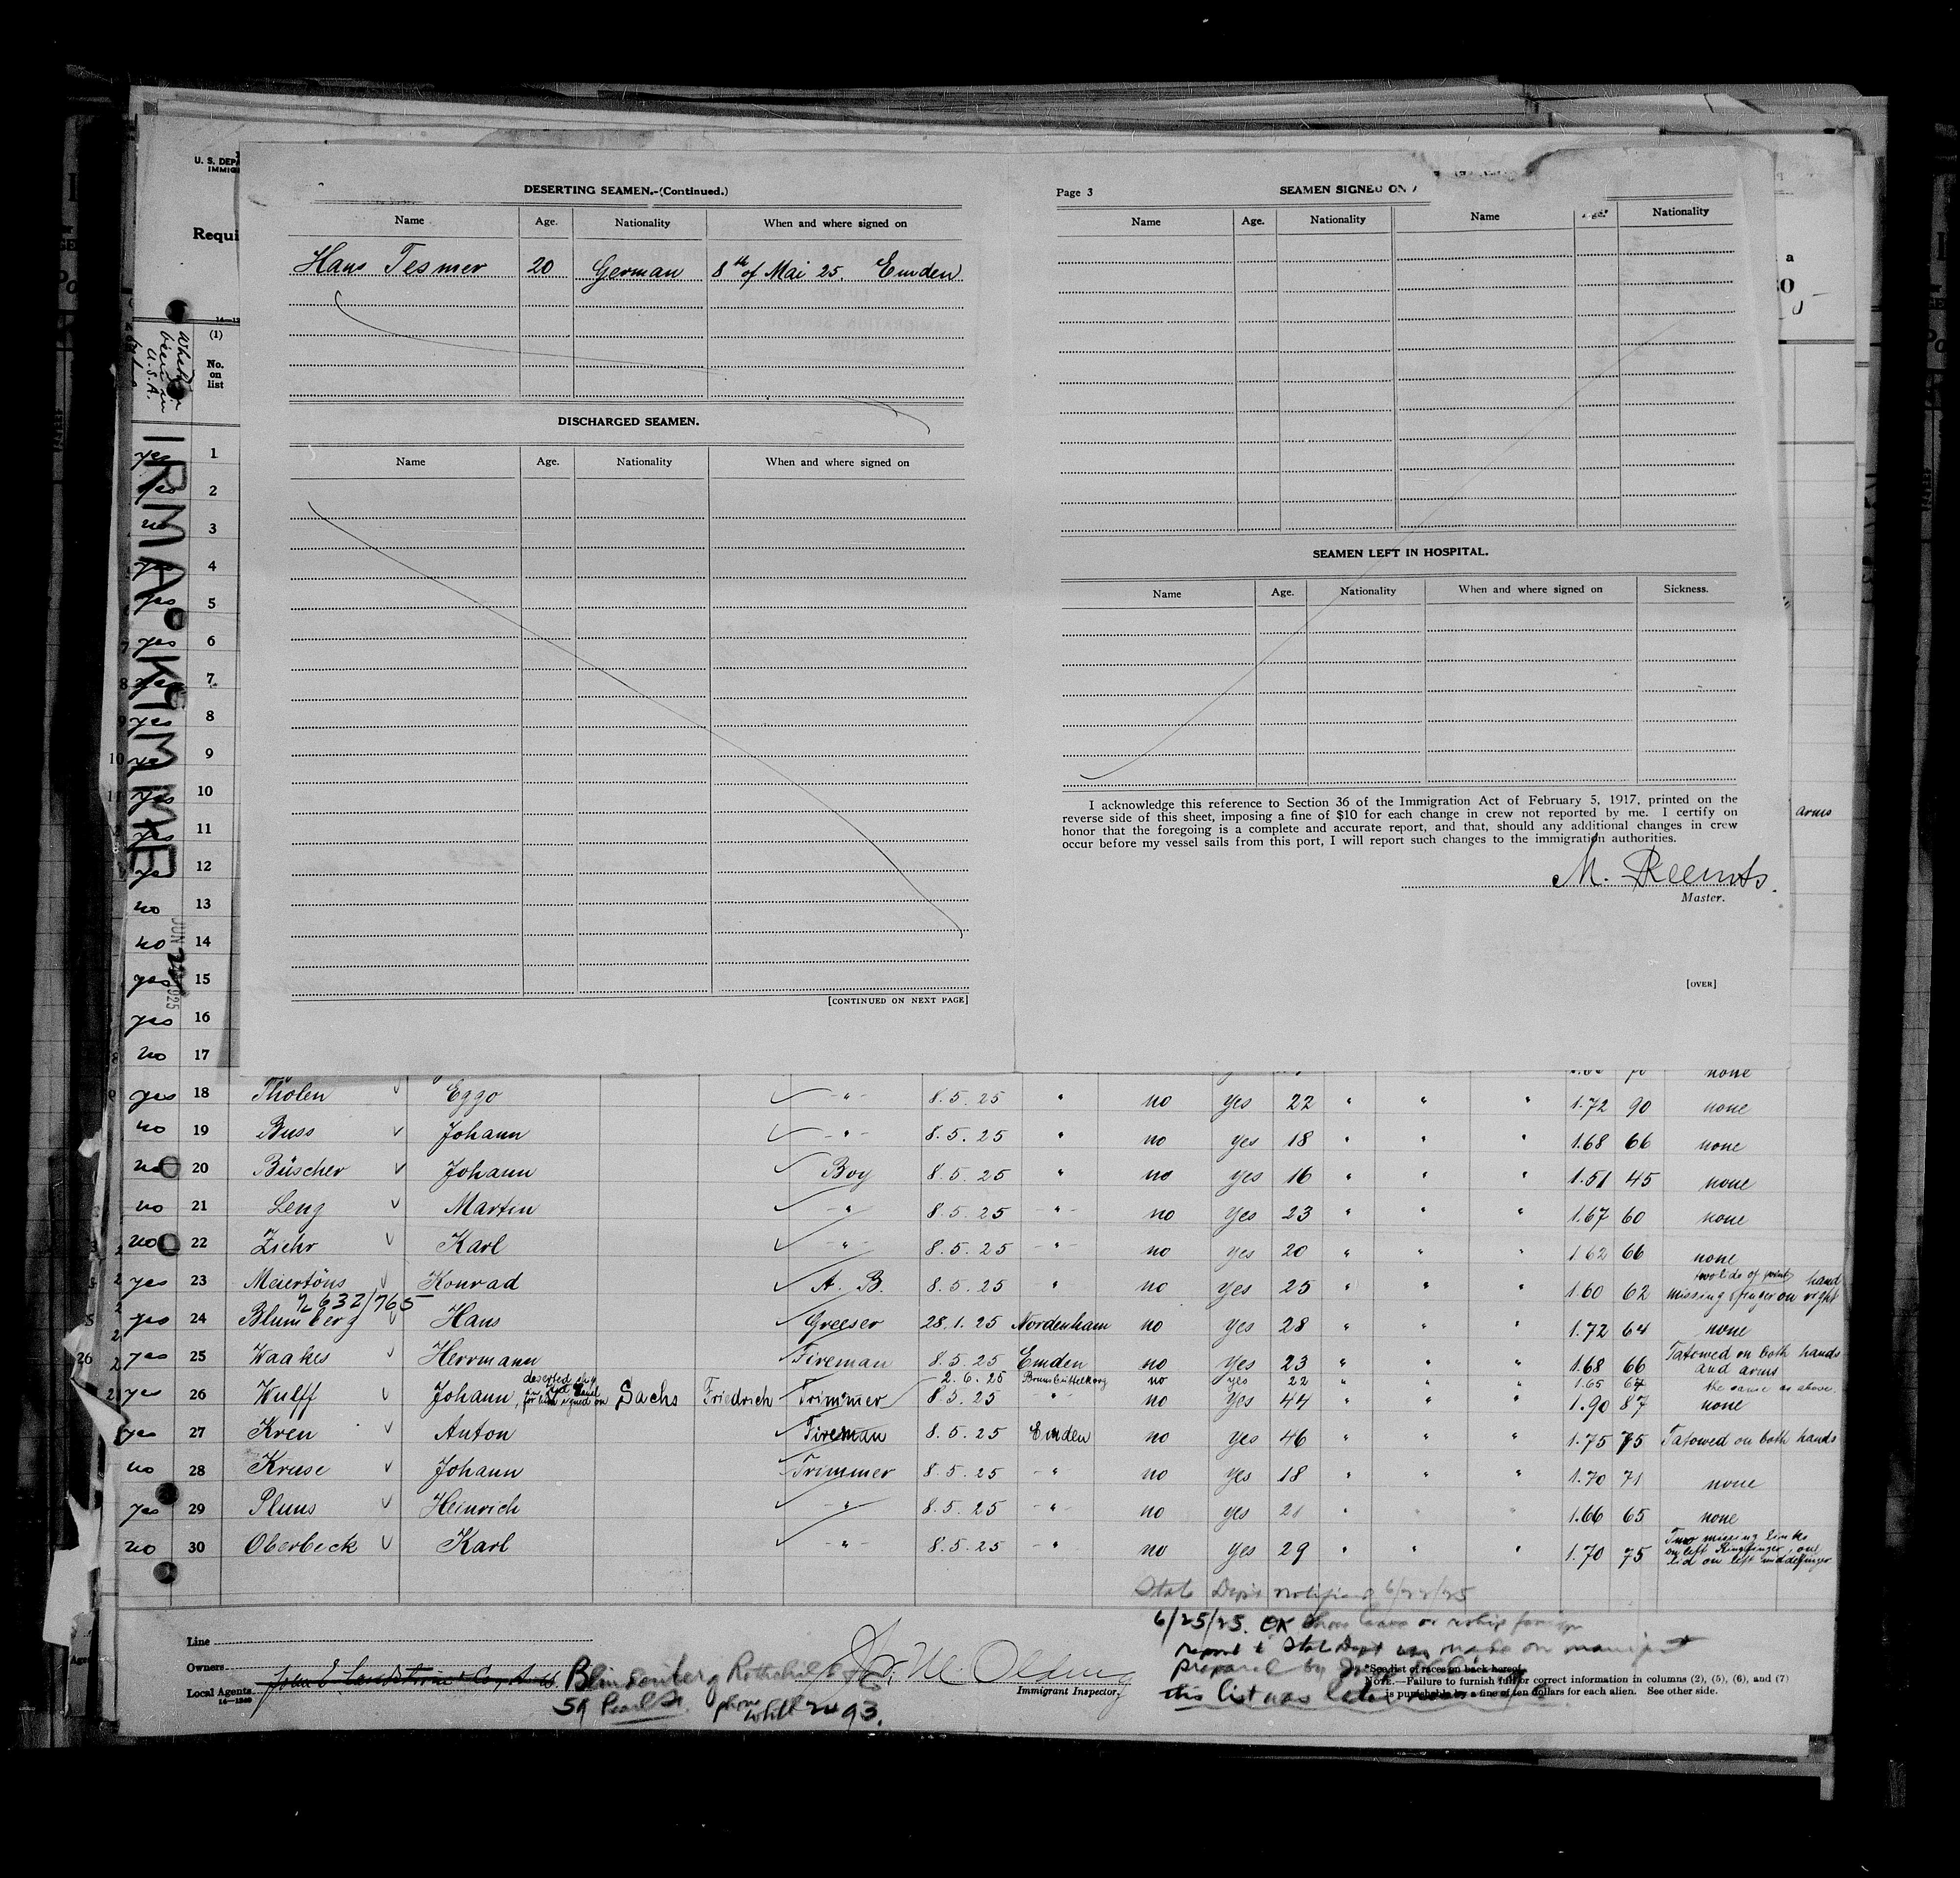 U. S. DEPA
IMMIG
Requi
DESERTING SEAMEN.-(Continued.)
Name Age. Nationality When and where signed on
Hans Tesmer 20 German 8th of Mai 25. Emden
DISCHARGED SEAMEN.
Name Age. Nationality When and where signed on
[CONTINUED ON NEXT PAGE]
Page 3 SEAMEN SIGNED ON
Name Age. Nationality Name Age. Nationality
SEAMEN LEFT IN HOSPITAL.
Name Age. Nationality When and where signed on Sickness.
I acknowledge this reference to Section 36 of the Immigration Act of February 5, 1917, printed on the
reverse side of this sheet, imposing a fine of $10 for each change in crew not reported by me. I certify on
honor that the foregoing is a complete and accurate report, and that, should any additional changes in crew
occur before my vessel sails from this port, I will report such changes to the immigration authorities.
M. Reemts
Master.
[OVER]
arms
(1)
No.
on
list
IRMA KIMMKE
JUN 1925
yes 1
yes 2
no 3
yes 4
yes 5
yes 6
yes 7
yes 8
yes 9
yes 10
yes 11
yes 12
no 13
no 14
yes 15
yes 16
no 17
none
yes 18 Tholen Eggo - " - 8. 5. 25 " no yes 22 " " " 1.72 90 none
no 19 Buss Johann - " - 8. 5. 25 " no yes 18 " " " 1.68 66 none
no 20 Büscher Johann Boy 8. 5. 25 " no yes 16 " " " 1.51 45 none
no 21 Leng Martin - " - 8. 5. 25 - " - no yes 23 " " " 1.67 60 none
no 22 Ziehr Karl - " - 8. 5. 25 - " - no yes 20 " " " 1.62 66 none
yes 23 Meiertöns Konrad A. B. 8. 5. 25 " no yes 25 " " " 1.60 62 missing finger on right hand
632/765
yes 24 Blumberg Hans Greeser 28. 1. 25 Nordenham no yes 28 " " " 1.72 64 none
yes 25 Waakes Herrmann Fireman 8. 5. 25 Emden no yes 23 " " " 1.68 66 Tatowed on both hands and arms
deserted ship
for him signed on Sachs Friedrich 2. 6. 25 Brunsbüttelkoog no yes 22 " " " 1.65 64 the same as above.
yes 26 Wulff Johann Trimmer 8. 5. 25 - " - no yes 44 " " " 1.90 87 none
yes 27 Kren Anton Fireman 8. 5. 25 Emden no yes 46 " " " 1.75 75 Tatowed on both hands
no 28 Kruse Johann Trimmer 8. 5. 25 - " no yes 18 " " " 1.70 71 none
yes 29 Pluns Heinrich - " - 8. 5. 25 - " - no yes 21 " " " 1.66 65 none
no 30 Oberbeck Karl - " - 8. 5. 25 - " - no yes 29 " " " 1.70 75 Two missing links on left Ringfinger, one lid on left middelfinger
State Dept notified
6/25/25. OK
report to State Dept was made on manifest
prepared by
this list was
Line
Owners
Local Agents
59 Pearl St. phone Whitl 2493.
Immigrant Inspector.
*See list of races on back hereof.
NOTE.—Failure to furnish full or correct information in columns (2), (5), (6), and (7)
is punishable by a fine of ten dollars for each alien. See other side.